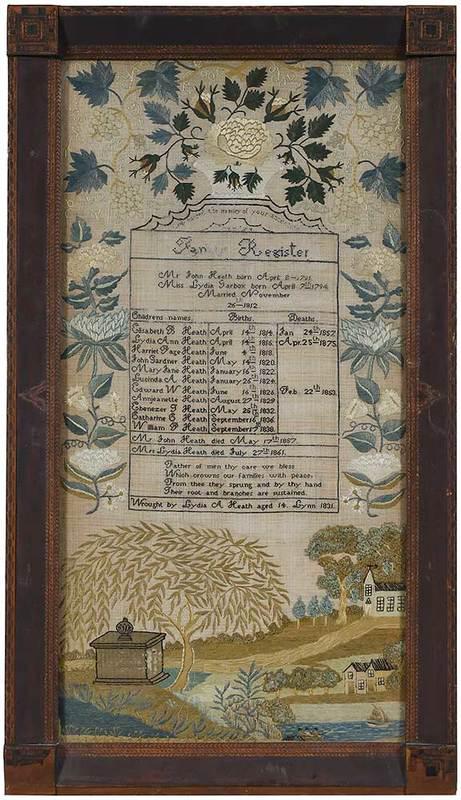 the memory of your
Family Register
Mr John Heath born April 8–1791.
Miss Lydia Tarbox born April 7th 1794.
Married November
26–1812.
Childrens names. Births. Deaths.
Elisabeth B Heath April 14th 1814. Jan 24th 1857.
Lydia Ann Heath April 14th 1816. Apr. 25th 1875.
Harriet Page Heath June 4th 1818.
John Gardner Heath May 14th 1820.
Mary Jane Heath January 16th 1822.
Lucinda A. Heath January 26th 1824.
Edward W Heath June 16th 1826. Feb. 22th 1853.
Annjeanette Heath August 27th 1829.
Ebenezer T Heath May 28th 1832.
Catharine E Heath September 16th 1836.
William P Heath September 17th 1838.
Mr John Heath died May 17th 1857.
Mrs Lydia Heath died July 27th 1861.
Father of men thy care we bless
Which crowns our families with peace,
From thee they sprung and by thy hand
Their root and branches are sustained.
Wrought by Lydia A Heath aged 14. Lynn 1831.